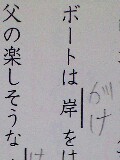 ボートは岸をは
がけ
父の楽しそうな